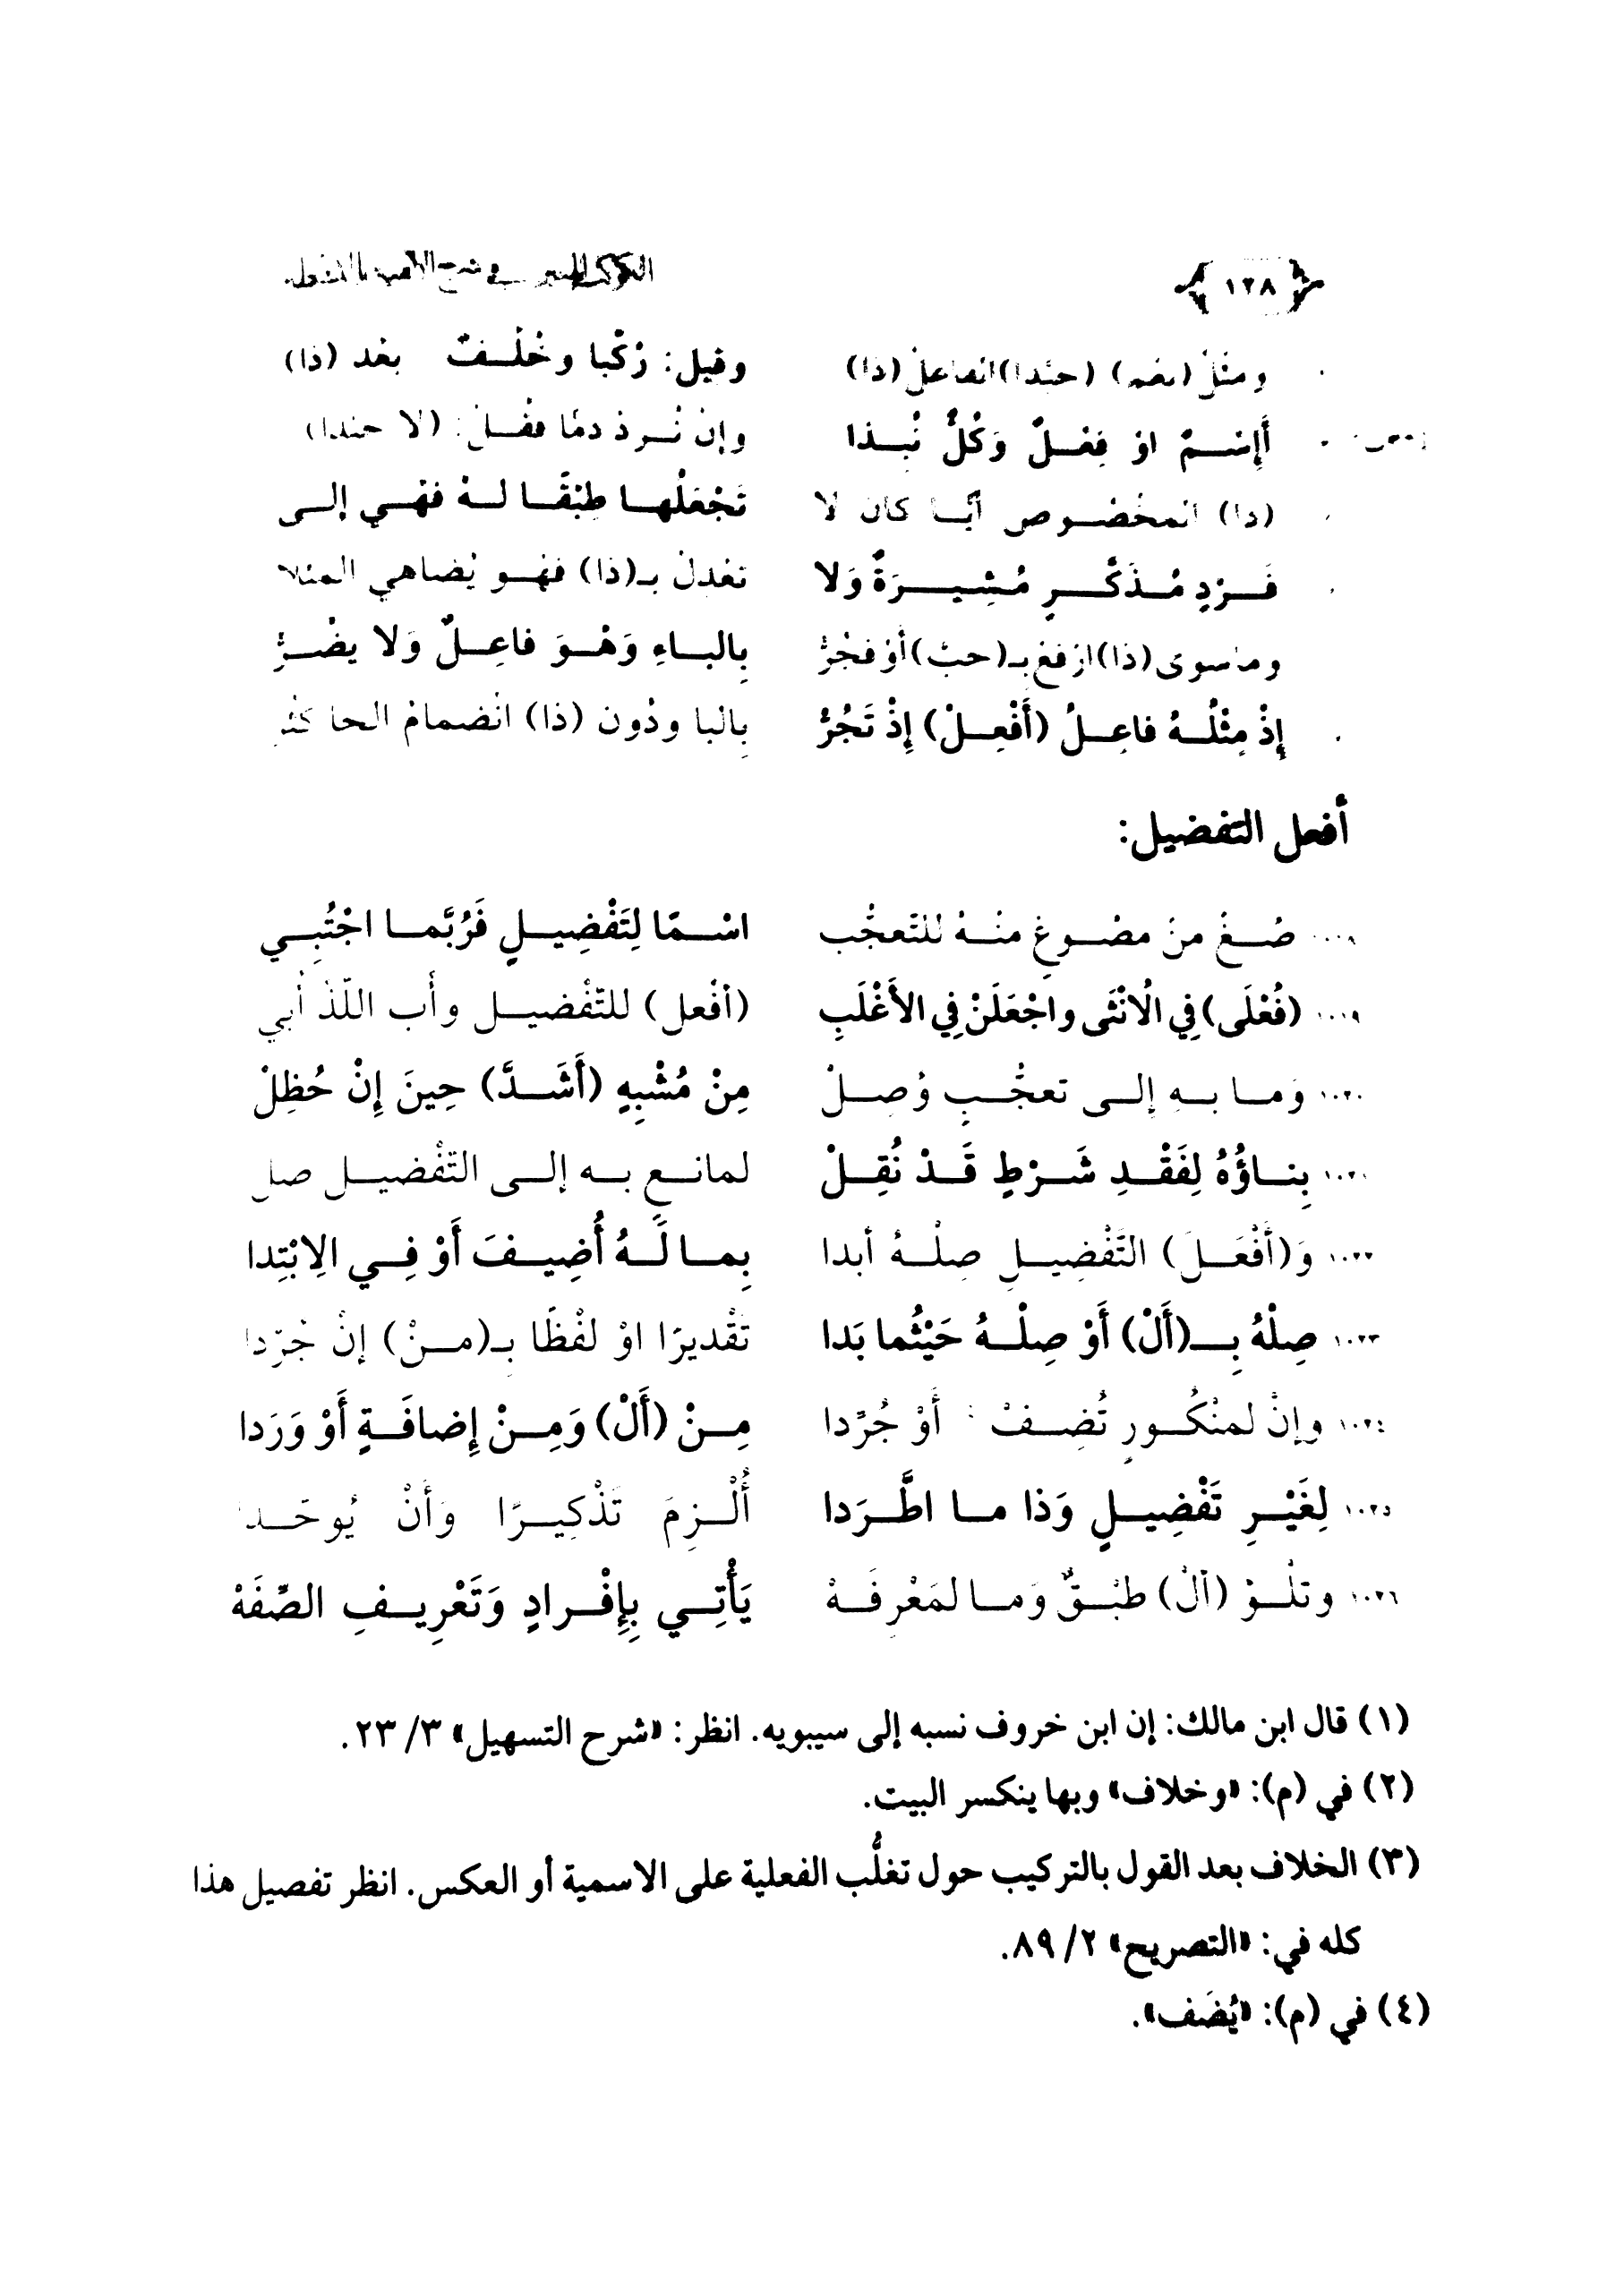 ١٢٨
ومثل (نعم) (حبذا) الفاعل (ذا) وقيل: رُكِّبا وخُلْفٌ بعد (ذا)
أَاِسْمٌ اوْ فِعْلٌ وَكُلٌّ نُبِذا وإن تُرِدْ ذمًّا فقل: (لا حبذا)
(ذا) المخصوص أيًّا كان لا تَجْعَلْها طِبْقًا له فهي إلى
فَرْدٍ مُذَكَّرٍ مُشِيرَةٌ وَلا تعدل بـ(ذا) فهو يُضاهي المثلا
وما سوى (ذا) ارفع بـ(حبّ) أو فجُرّْ بِالباءِ وَهْوَ فاعِلٌ وَلا يضُرّْ
إِذْ مِثْلُهُ فاعِلُ (أَفْعِلْ) إِذْ تَجُرّْ بِالبا ودُون (ذا) انضمامُ الحا كثر
أفعل التفضيل:
١٠١٨ صُغْ مِنْ مصُوغٍ منهُ للتَّعجُّب اسْمًا لِتَفْضِيلٍ فَرُبَّما اجْتُبِي
١٠١٩ (فُعْلَى) فِي الُانْثَى واجْعَلَنْ فِي الأَغْلَبِ (أفعل) للتَّفْضيل وأْب اللَّذْ أُبي
١٠٢٠ وَما بهِ إلى تعجُّبٍ وُصِلْ مِنْ مُشْبِهٍ (أَشَدَّ) حِينَ إِنْ حُظِلْ
١٠٢١ بِناؤُهُ لِفَقْدِ شَرْطٍ قَدْ نُقِلْ لمانعٍ به إلى التّفْضيل صل
١٠٢٢ وَ(أَفْعَلَ) التَّفْضِيلِ صِلْهُ أبدا بِما لَهُ أُضِيفَ أَوْ فِي الِابْتِدا
١٠٢٣ صِلْهُ بِـ(أَلْ) أَوْ صِلْهُ حَيْثُما بَدا تقْديرًا اوْ لفْظًا بِـ(منْ) إنْ جُرّدا
١٠٢٤ وإنْ لمنْكُورٍ تُضِفْ أَوْ جُرِّدا مِنْ (أَلْ) وَمِنْ إِضافَةٍ أَوْ وَرَدا
١٠٢٥ لِغَيْرِ تَفْضِيلٍ وَذا ما اطَّرَدا أُلْزِمَ تَذْكِيرًا وَأَنْ يُوحّدا
١٠٢٦ وتلْوُ (ألْ) طبْقٌ وَما لمَعْرِفَهْ يَأْتِي بِإِفْرادٍ وَتَعْرِيفِ الصِّفَهْ
(١) قال ابن مالك: إن ابن خروف نسبه إلى سيبويه. انظر: «شرح التسهيل» ٣/ ٢٣.
(٢) في (م): «وخلاف» وبها ينكسر البيت.
(٣) الخلاف بعد القول بالتركيب حول تغلُّب الفعلية على الاسمية أو العكس. انظر تفصيل هذا
كله في: «التصريح» ٢/ ٨٩.
(٤) في (م): «يُضَف».